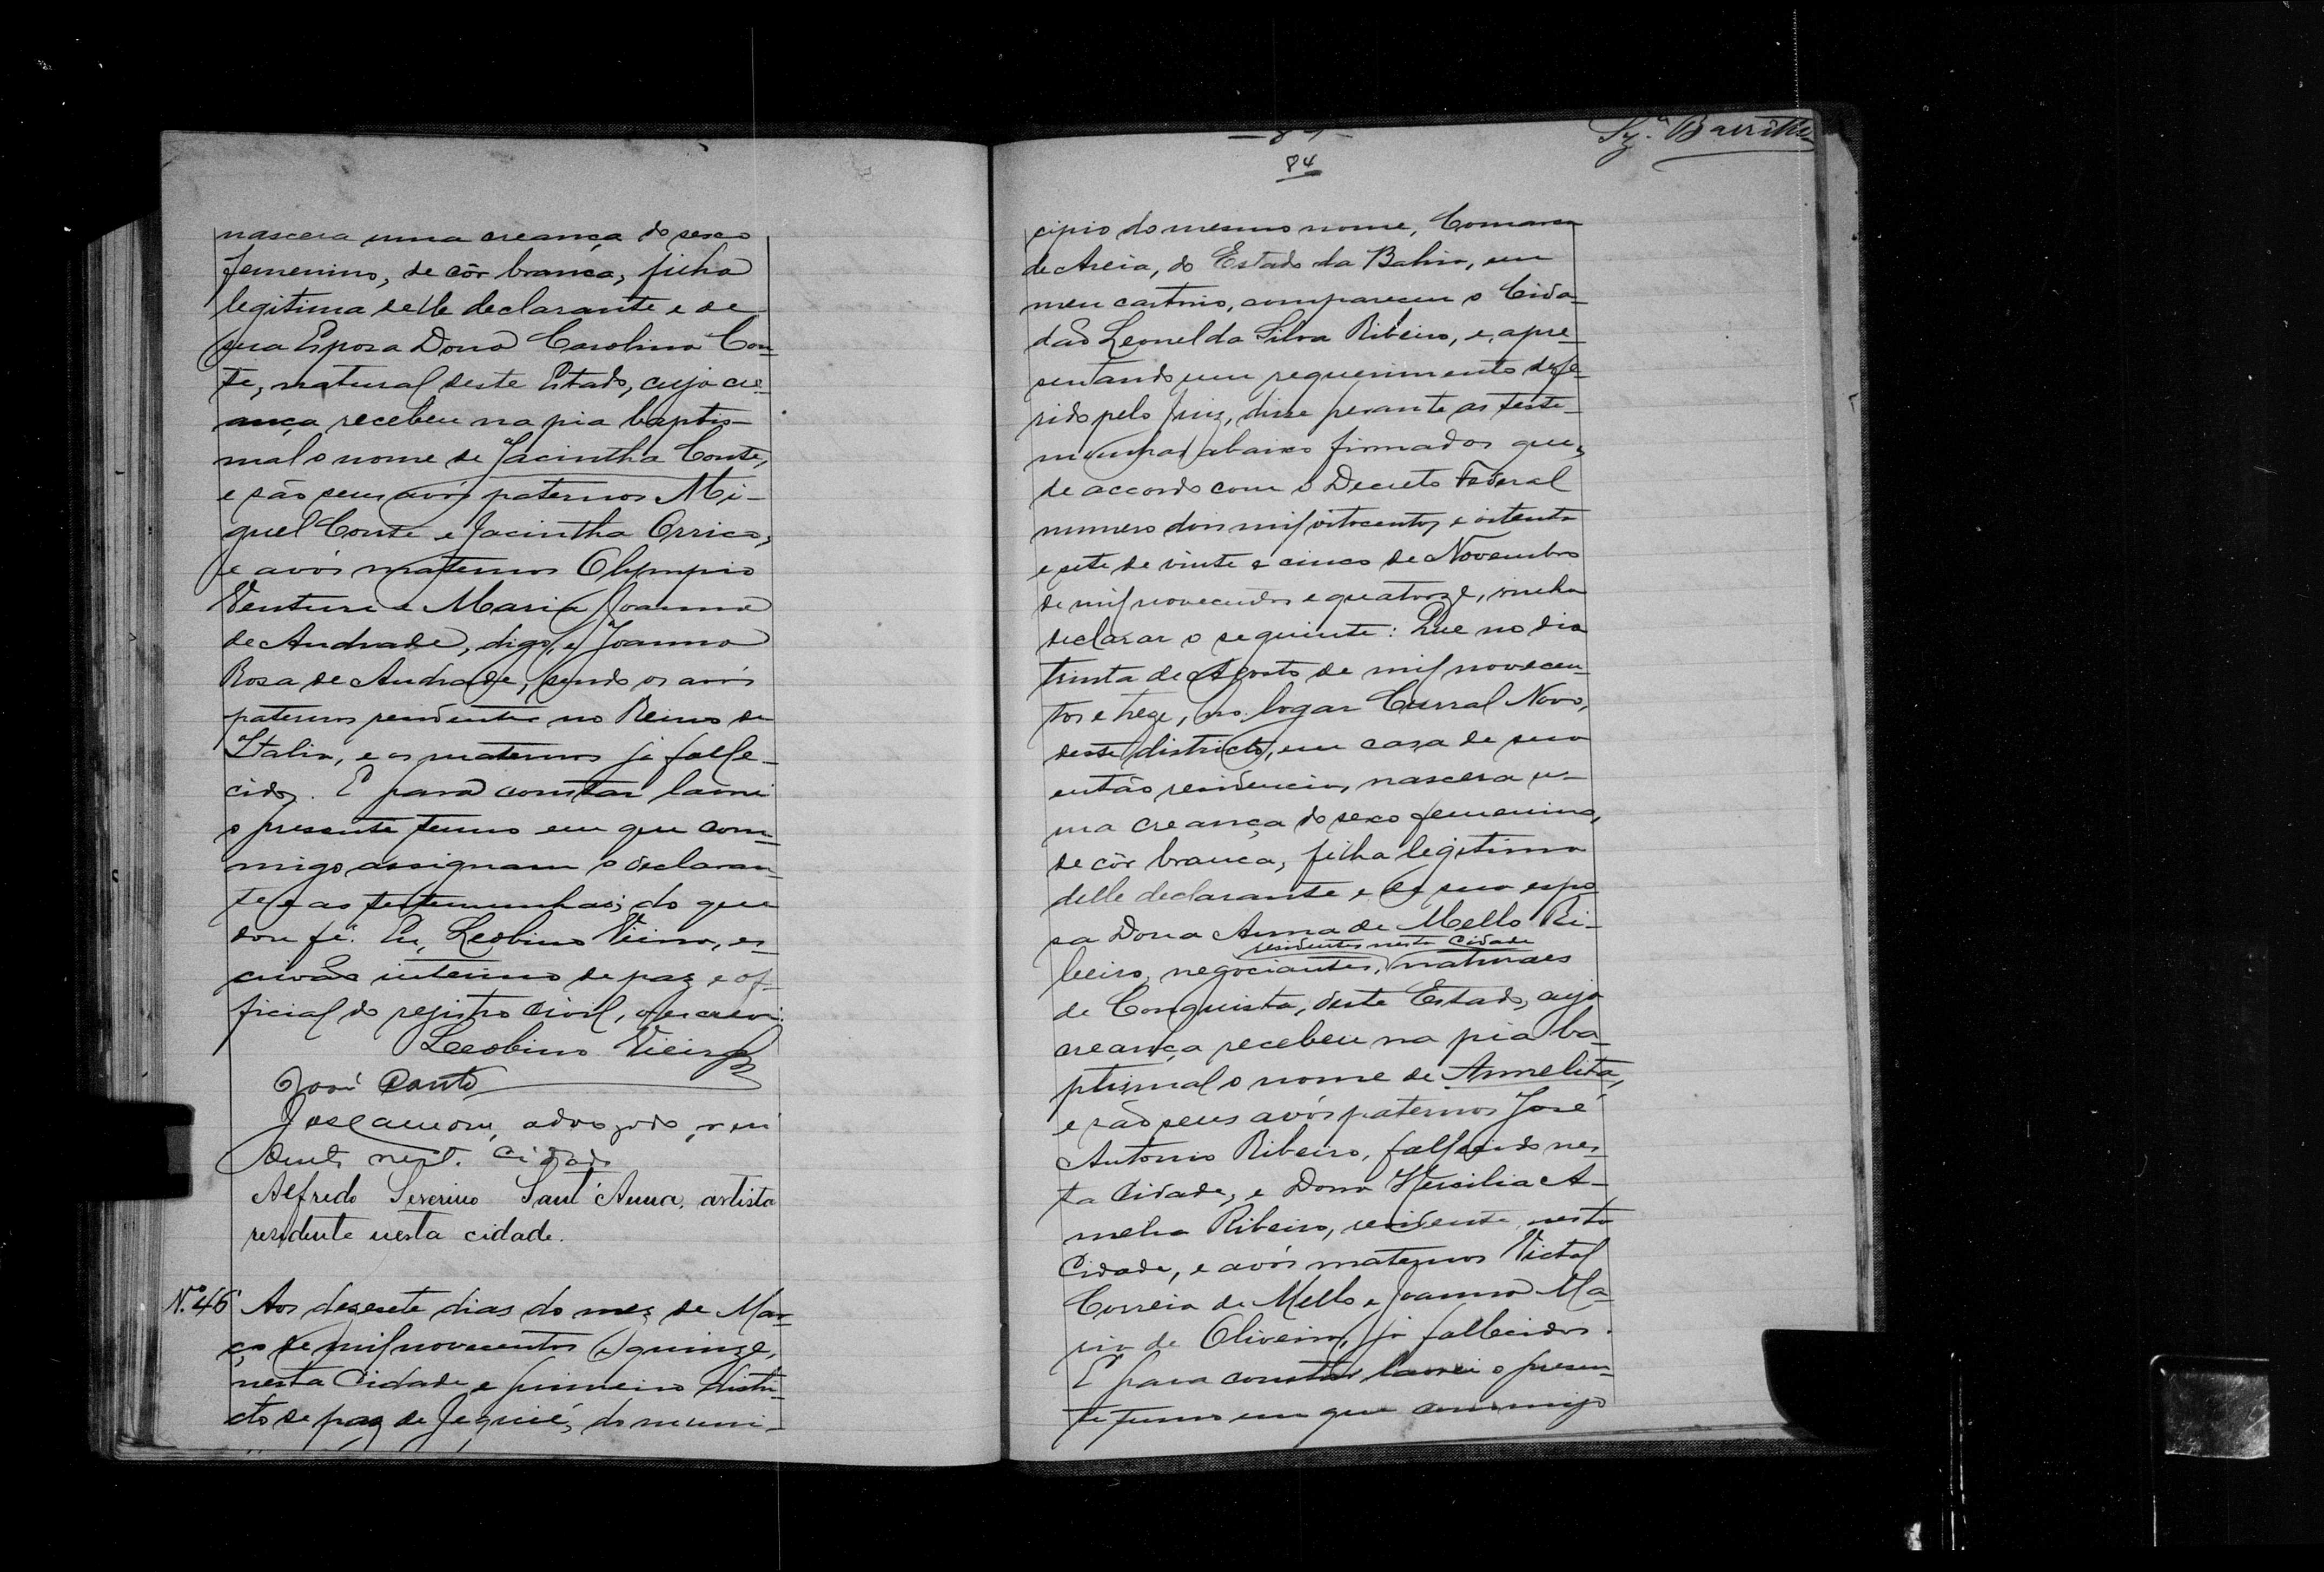 nascera uma creança do sexo
femenino, de côr branca, filha
legitima delle declarante e de
sua Esposa Dona Carolina Con-
te, natural deste Estado, cuja cre-
ança recebeu na pia baptis-
mal o nome de Jacintha Conte,
e são seus avós paternos Mi-
guel Conte e Jacintha Orrico,
e avós maternos Olympio
Venture e Maria Joanna
de Andrade, digo, e Joanna
Rosa de Andrade, sendo os avós
paternos residentes no Reino da
Italia, e os maternos já falle-
cidos. E para constar lavrei
o presente termo em que com-
migo assignam o declaran-
te e as testemunhas; do que
dou fé. Eu, Leobino Vieira, es-
crivão interino de paz e of-
ficial do registro civil, o escrevi.
Leobino Vieira
José Conte
advogado, resi
dente nest. cidade
Alfredo Severino Sant'Anna, artista
residente nesta cidade.
N.º 46 Aos desesete dias do mez de Mar-
ço de mil novecentos e quinze,
nesta Cidade e primeiro distri-
cto de paz de Jequié, do muni-
84
cipio do mesmo nome, Comarca
de Areia, do Estado da Bahia, em
meu cartorio, compareceu o Cida-
dão Leonel da Silva Ribeiro, e, apre-
sentando um requerimento defe-
rido pelo Juiz, disse perante as teste-
munhas abaixo firmados que,
de accordo com o Decreto Federal
numero dois mil oitocentos e oitenta
e sete de vinte e cinco de Novembro
de mil novecentos e quatorze, vinha
declarar o seguinte: Que no dia
trinta de Agosto de mil novecen-
tos e treze, no logar Curral Novo,
deste districto, em casa de sua
então residencia, nascera u-
ma creança do sexo femenino,
de côr branca, filha legitima
delle declarante e de sua espo
sa Dona Anna de Mello Ri-
residentes nesta Cidade
beiro, negociantes, naturaes
de Conquista, deste Estado, cuja
creança recebeu na pia ba-
ptismal o nome de Annelita,
e são seus avós paternos José
Antonio Ribeiro, fallecido nes-
ta Cidade, e Dona Hersilia A-
melia Ribeiro, residente nesta
Cidade, e avós maternos Victal
Correia de Mello e Joanna Ma-
ria de Oliveira, já fallecidos.
E para constar lavrei o presen-
te termo em que commigo